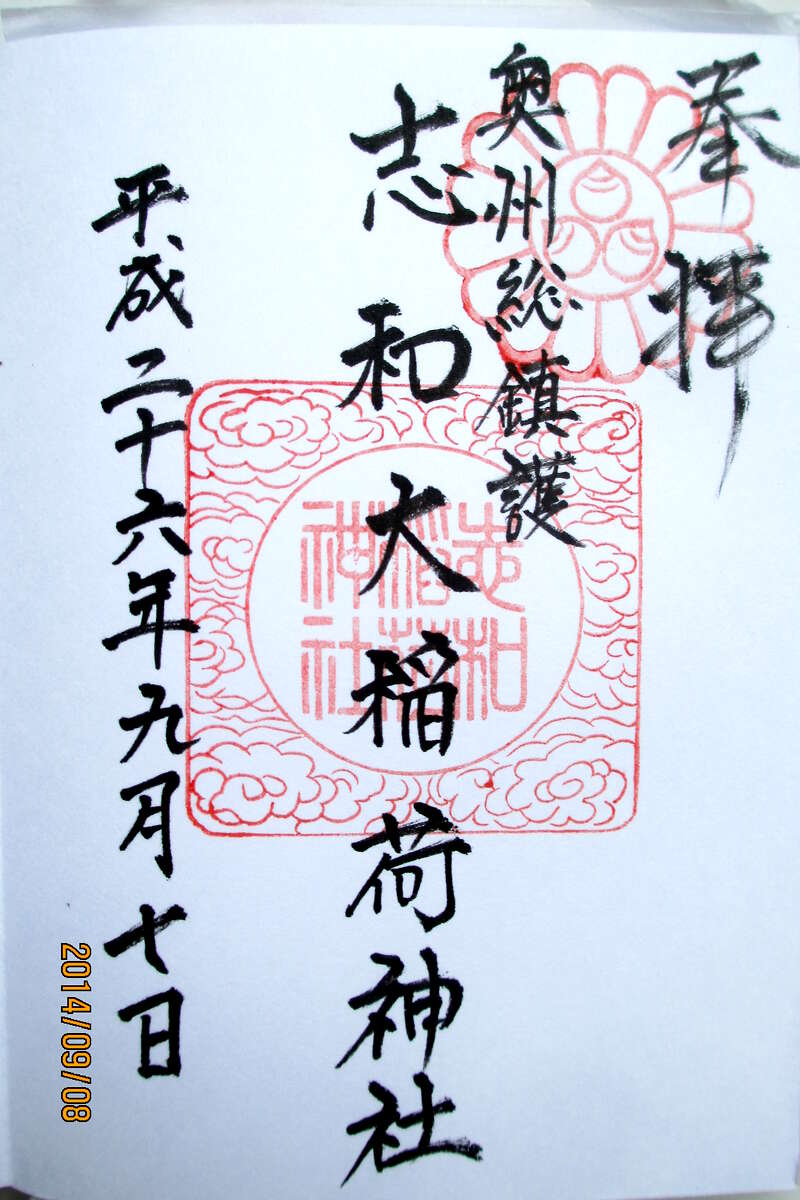 奉拝
奥州総鎮護
志和大稲荷神社
平成二十六年九月七日
志和
稲荷
神社
2014/09/08